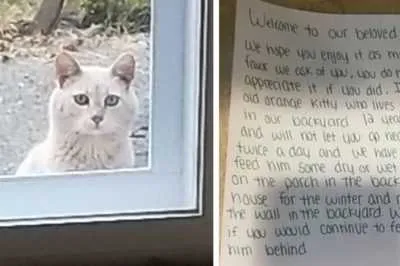 Welcome to our beloved
We hope you enjoy it as m
favor we ask of you, you do n
appreciate it if you did. I
old orange Kitty who lives
in our backyard 12 yea
and will not let you go nea
twice a day and we have
feed him some dry or wet
on the porch in the back
house for the winter and r
the wall in the backyard w
if you would continue to fe
him behind